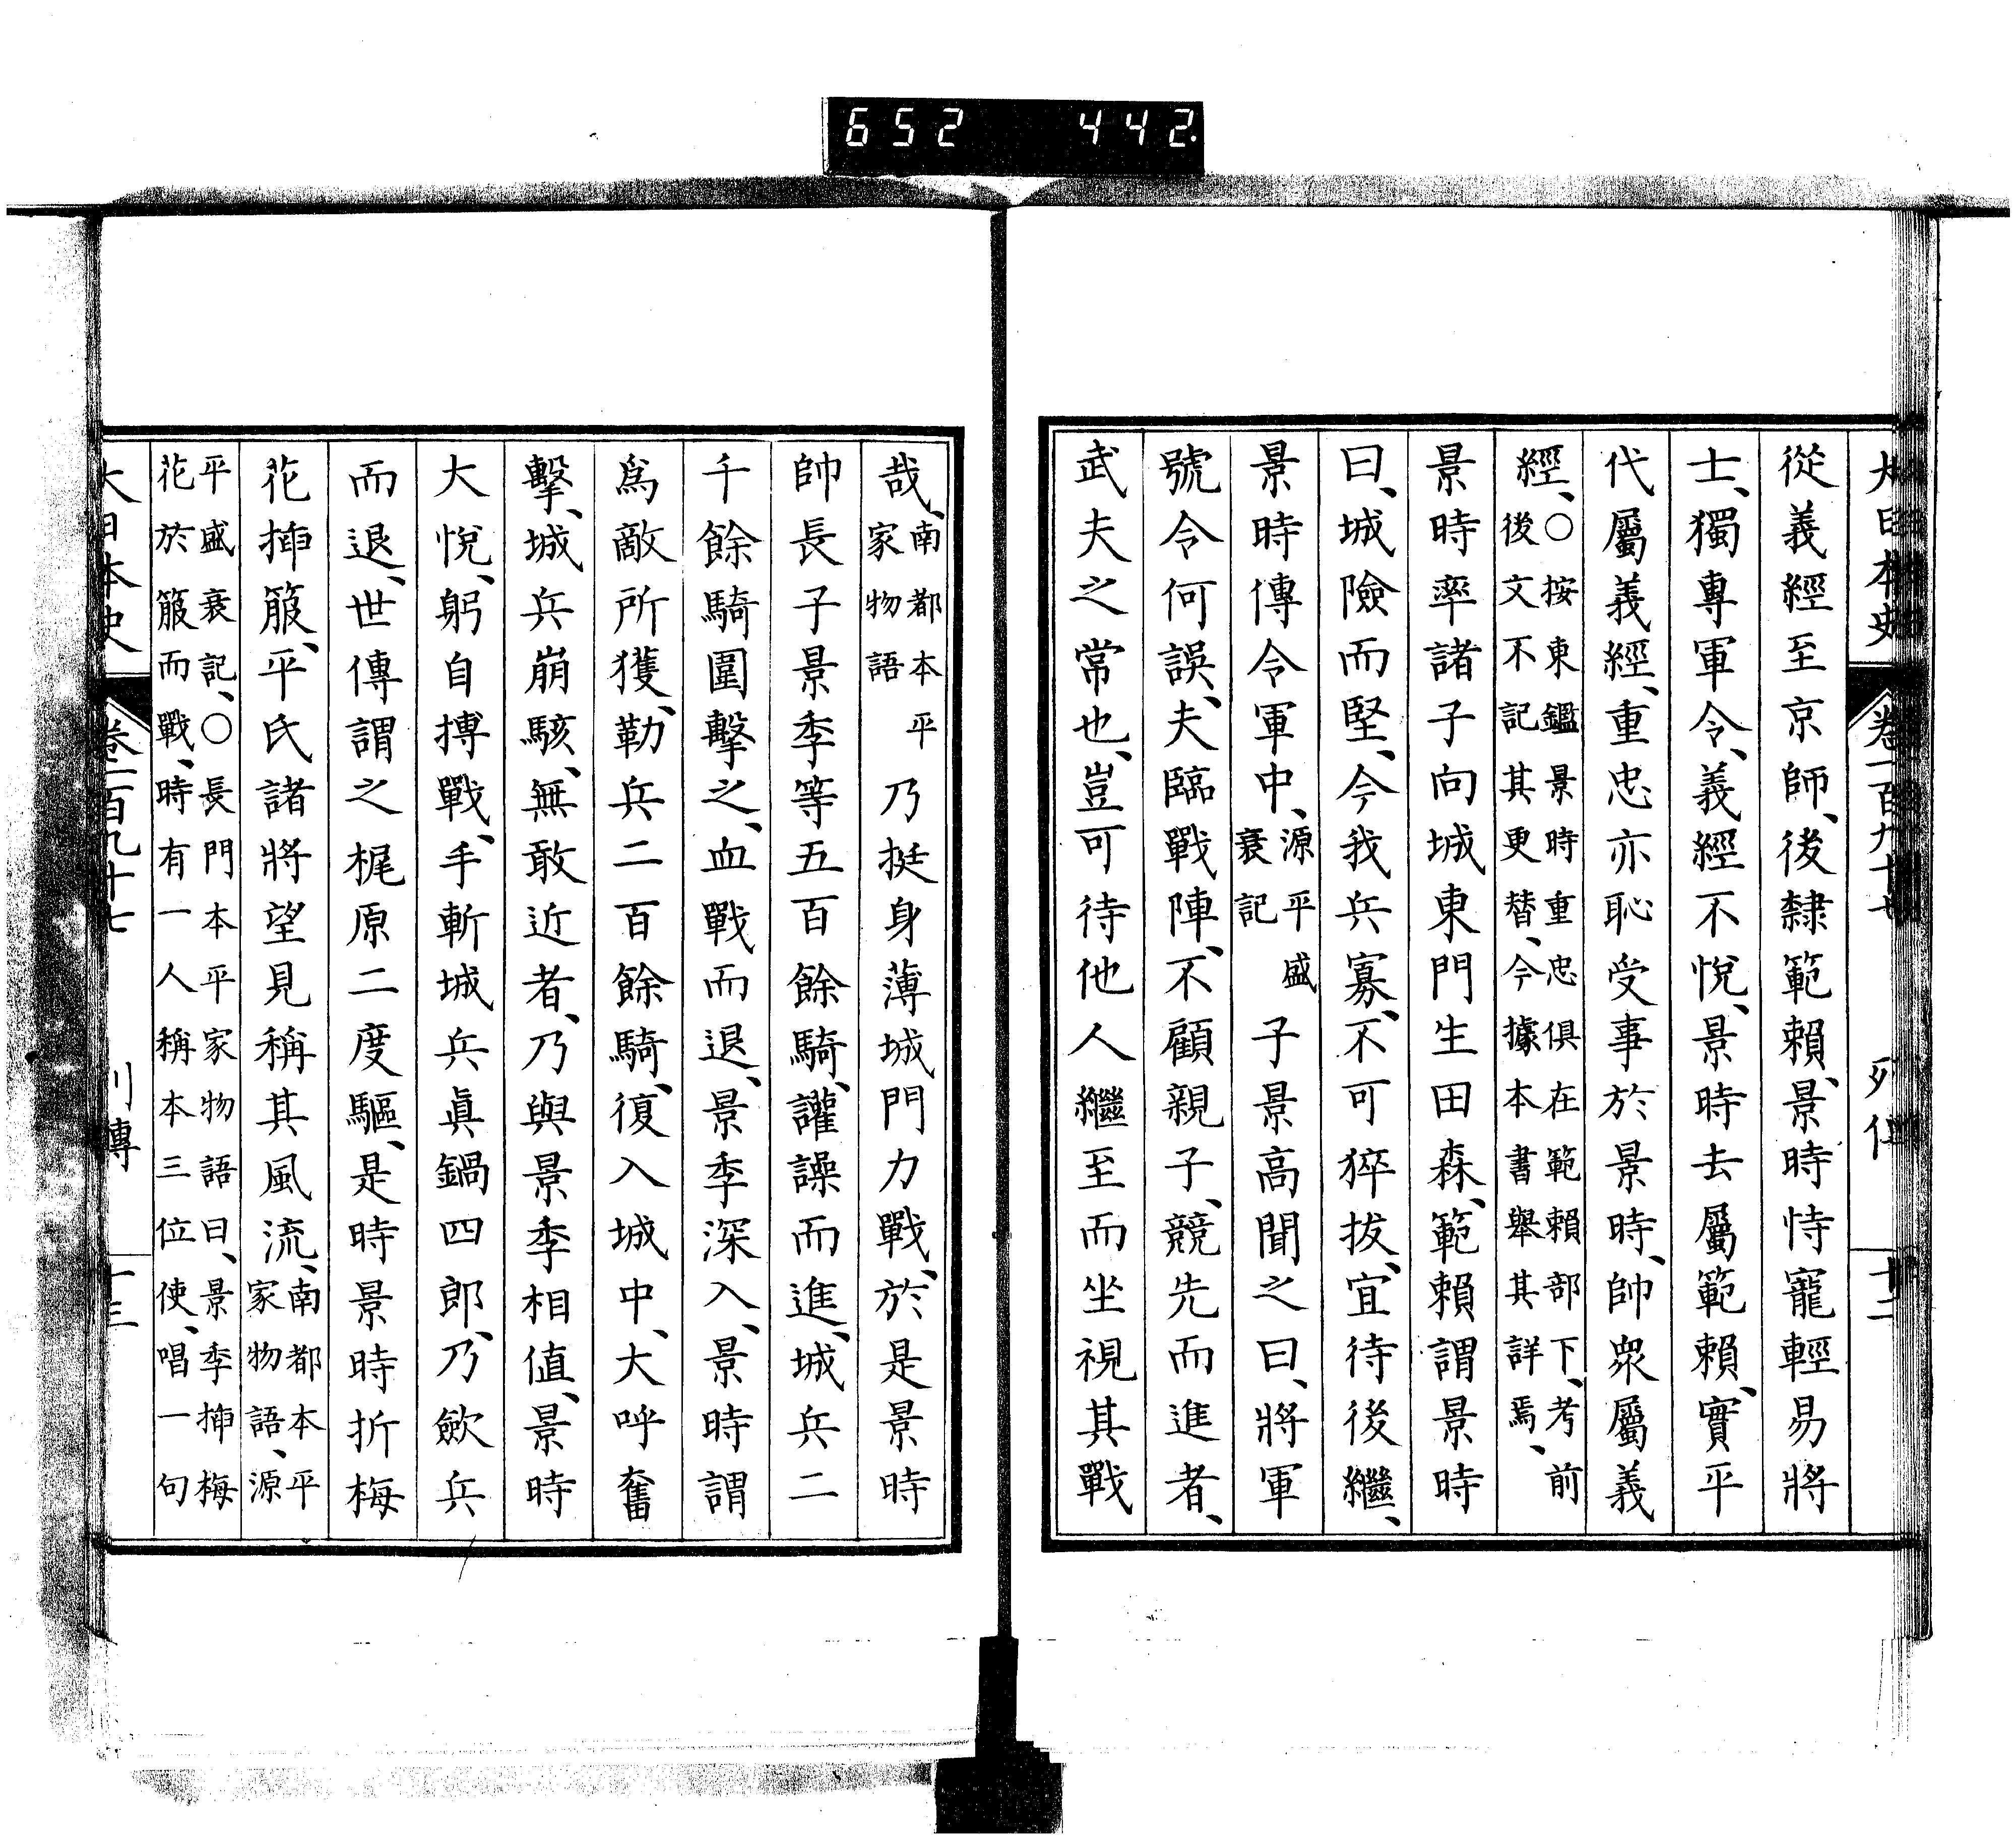 652 442.
大日本史 卷一百九十七 列傳 十二
從義經至京師、後隸範賴、景時恃寵輕易將
士、獨專軍令、義經不悅、景時去屬範賴、實平
代屬義經、重忠亦恥受事於景時、帥衆屬義
經、○按東鑑景時重忠俱在範賴部下、考前
後文不記其更替、今據本書舉其詳焉、
景時率諸子向城東門生田森、範賴謂景時
曰、城險而堅、今我兵寡、不可猝拔、宜待後繼、
景時傳令軍中、源平盛
衰記
子景高聞之曰、將軍
號令何誤、夫臨戰陣、不顧親子、競先而進者、
武夫之常也、豈可待他人繼至而坐視其戰
哉、南都本平
家物語
乃挺身薄城門力戰、於是景時
帥長子景季等五百餘騎、讙譟而進、城兵二
千餘騎圍擊之、血戰而退、景季深入、景時謂
爲敵所獲、勒兵二百餘騎、復入城中、大呼奮
擊、城兵崩駭、無敢近者、乃與景季相値、景時
大悅、躬自搏戰、手斬城兵眞鍋四郎、乃歛兵
而退、世傳謂之梶原二度驅、是時景時折梅
花揷箙、平氏諸將望見稱其風流、南都本平
家物語、源
平盛衰記、○長門本平家物語曰、景季揷梅
花於箙而戰、時有一人稱本三位使、唱一句
大日本史 卷一百九十七 列傳 十三